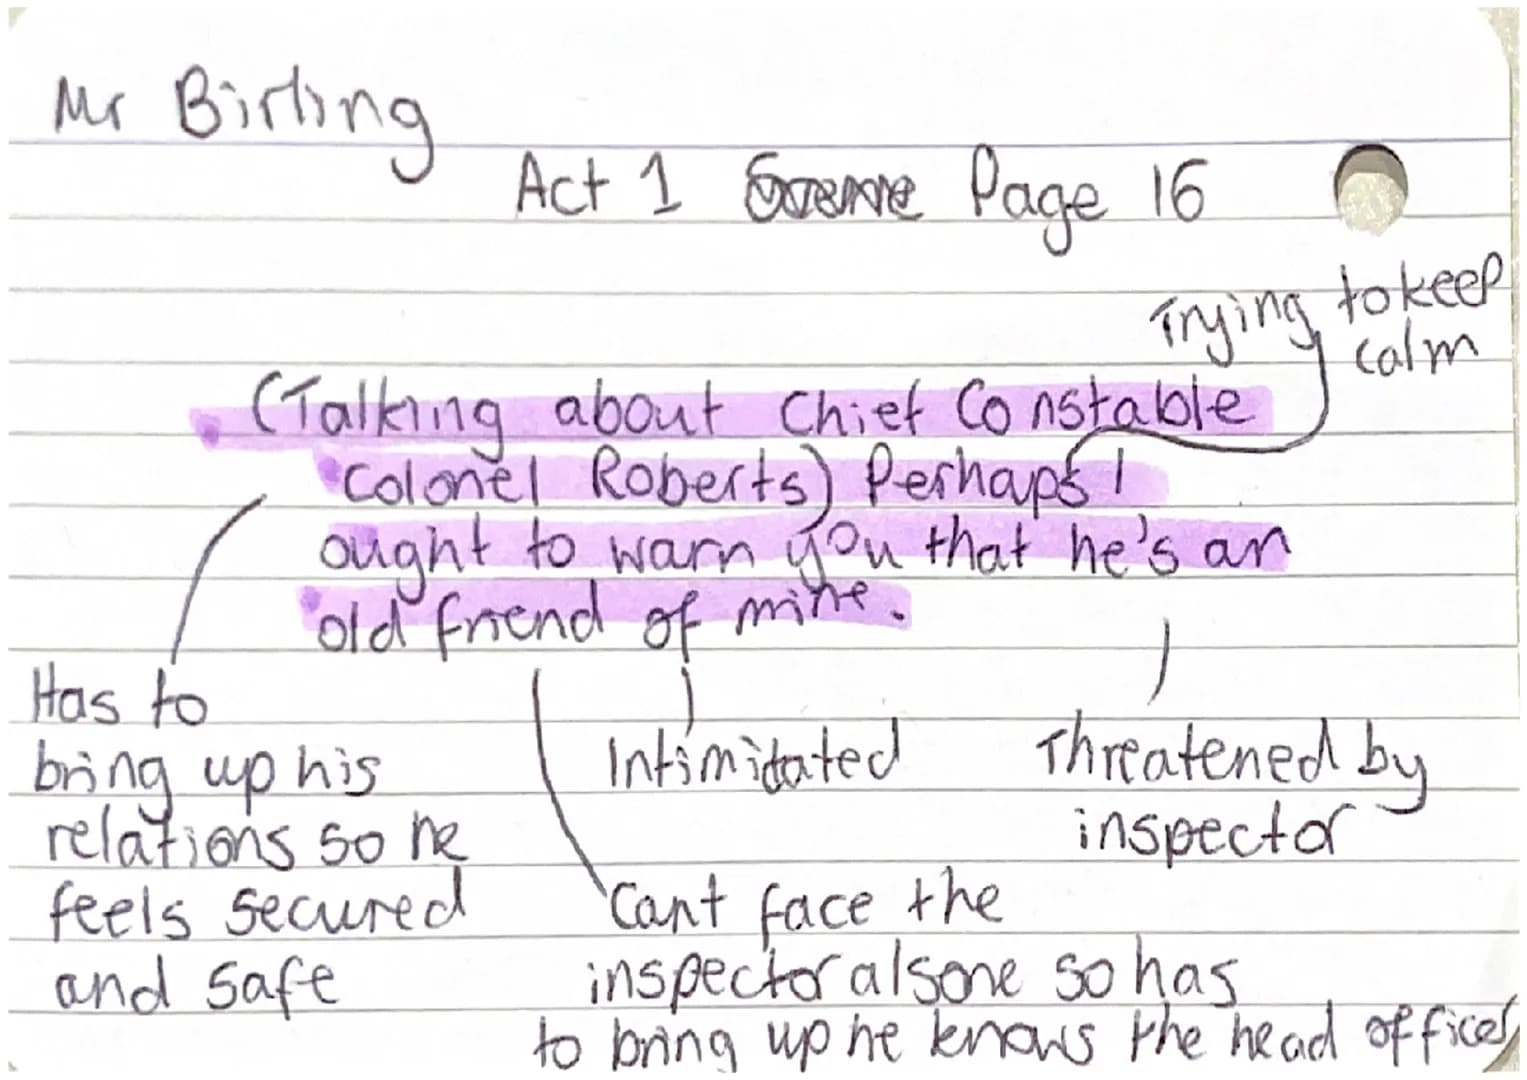 Mr Birling
Act 1 Page 16
Trying to keep
calm
(Talking about Chief Constable
Colonel Roberts) Perhaps I
ought to warn you that he's an
old friend of mine.
Has to
bring up his
relations so he
feels secured
and safe
Intimitated
Threatened by
inspector
Cant face the
inspector alsone so has
to bring up he knows the head officer